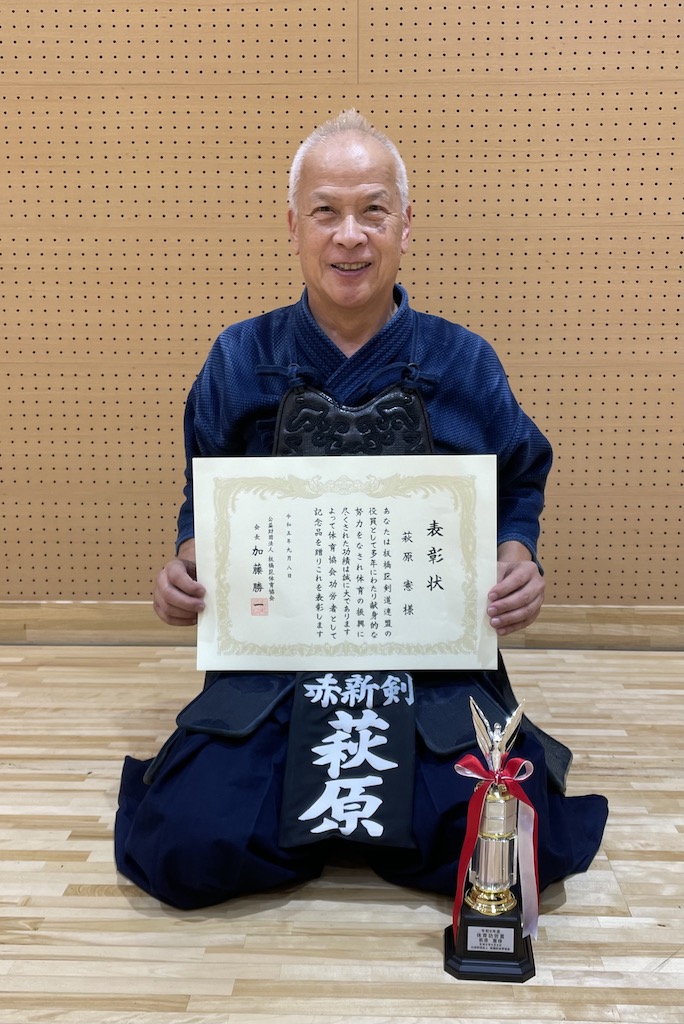 表彰状
萩原 憲 様
あなたは板橋区剣道連盟の
役員として多年にわたり献身的な
努力をなされ体育の振興に
尽くされた功績は誠に大であります
よって体育協会功労者として
記念品を贈りこれを表彰します
令和五年九月八日
公益財団法人 板橋区体育協会
会長 加藤勝一
赤新剣
萩原
令和5年度
体育功労賞
萩原 憲様